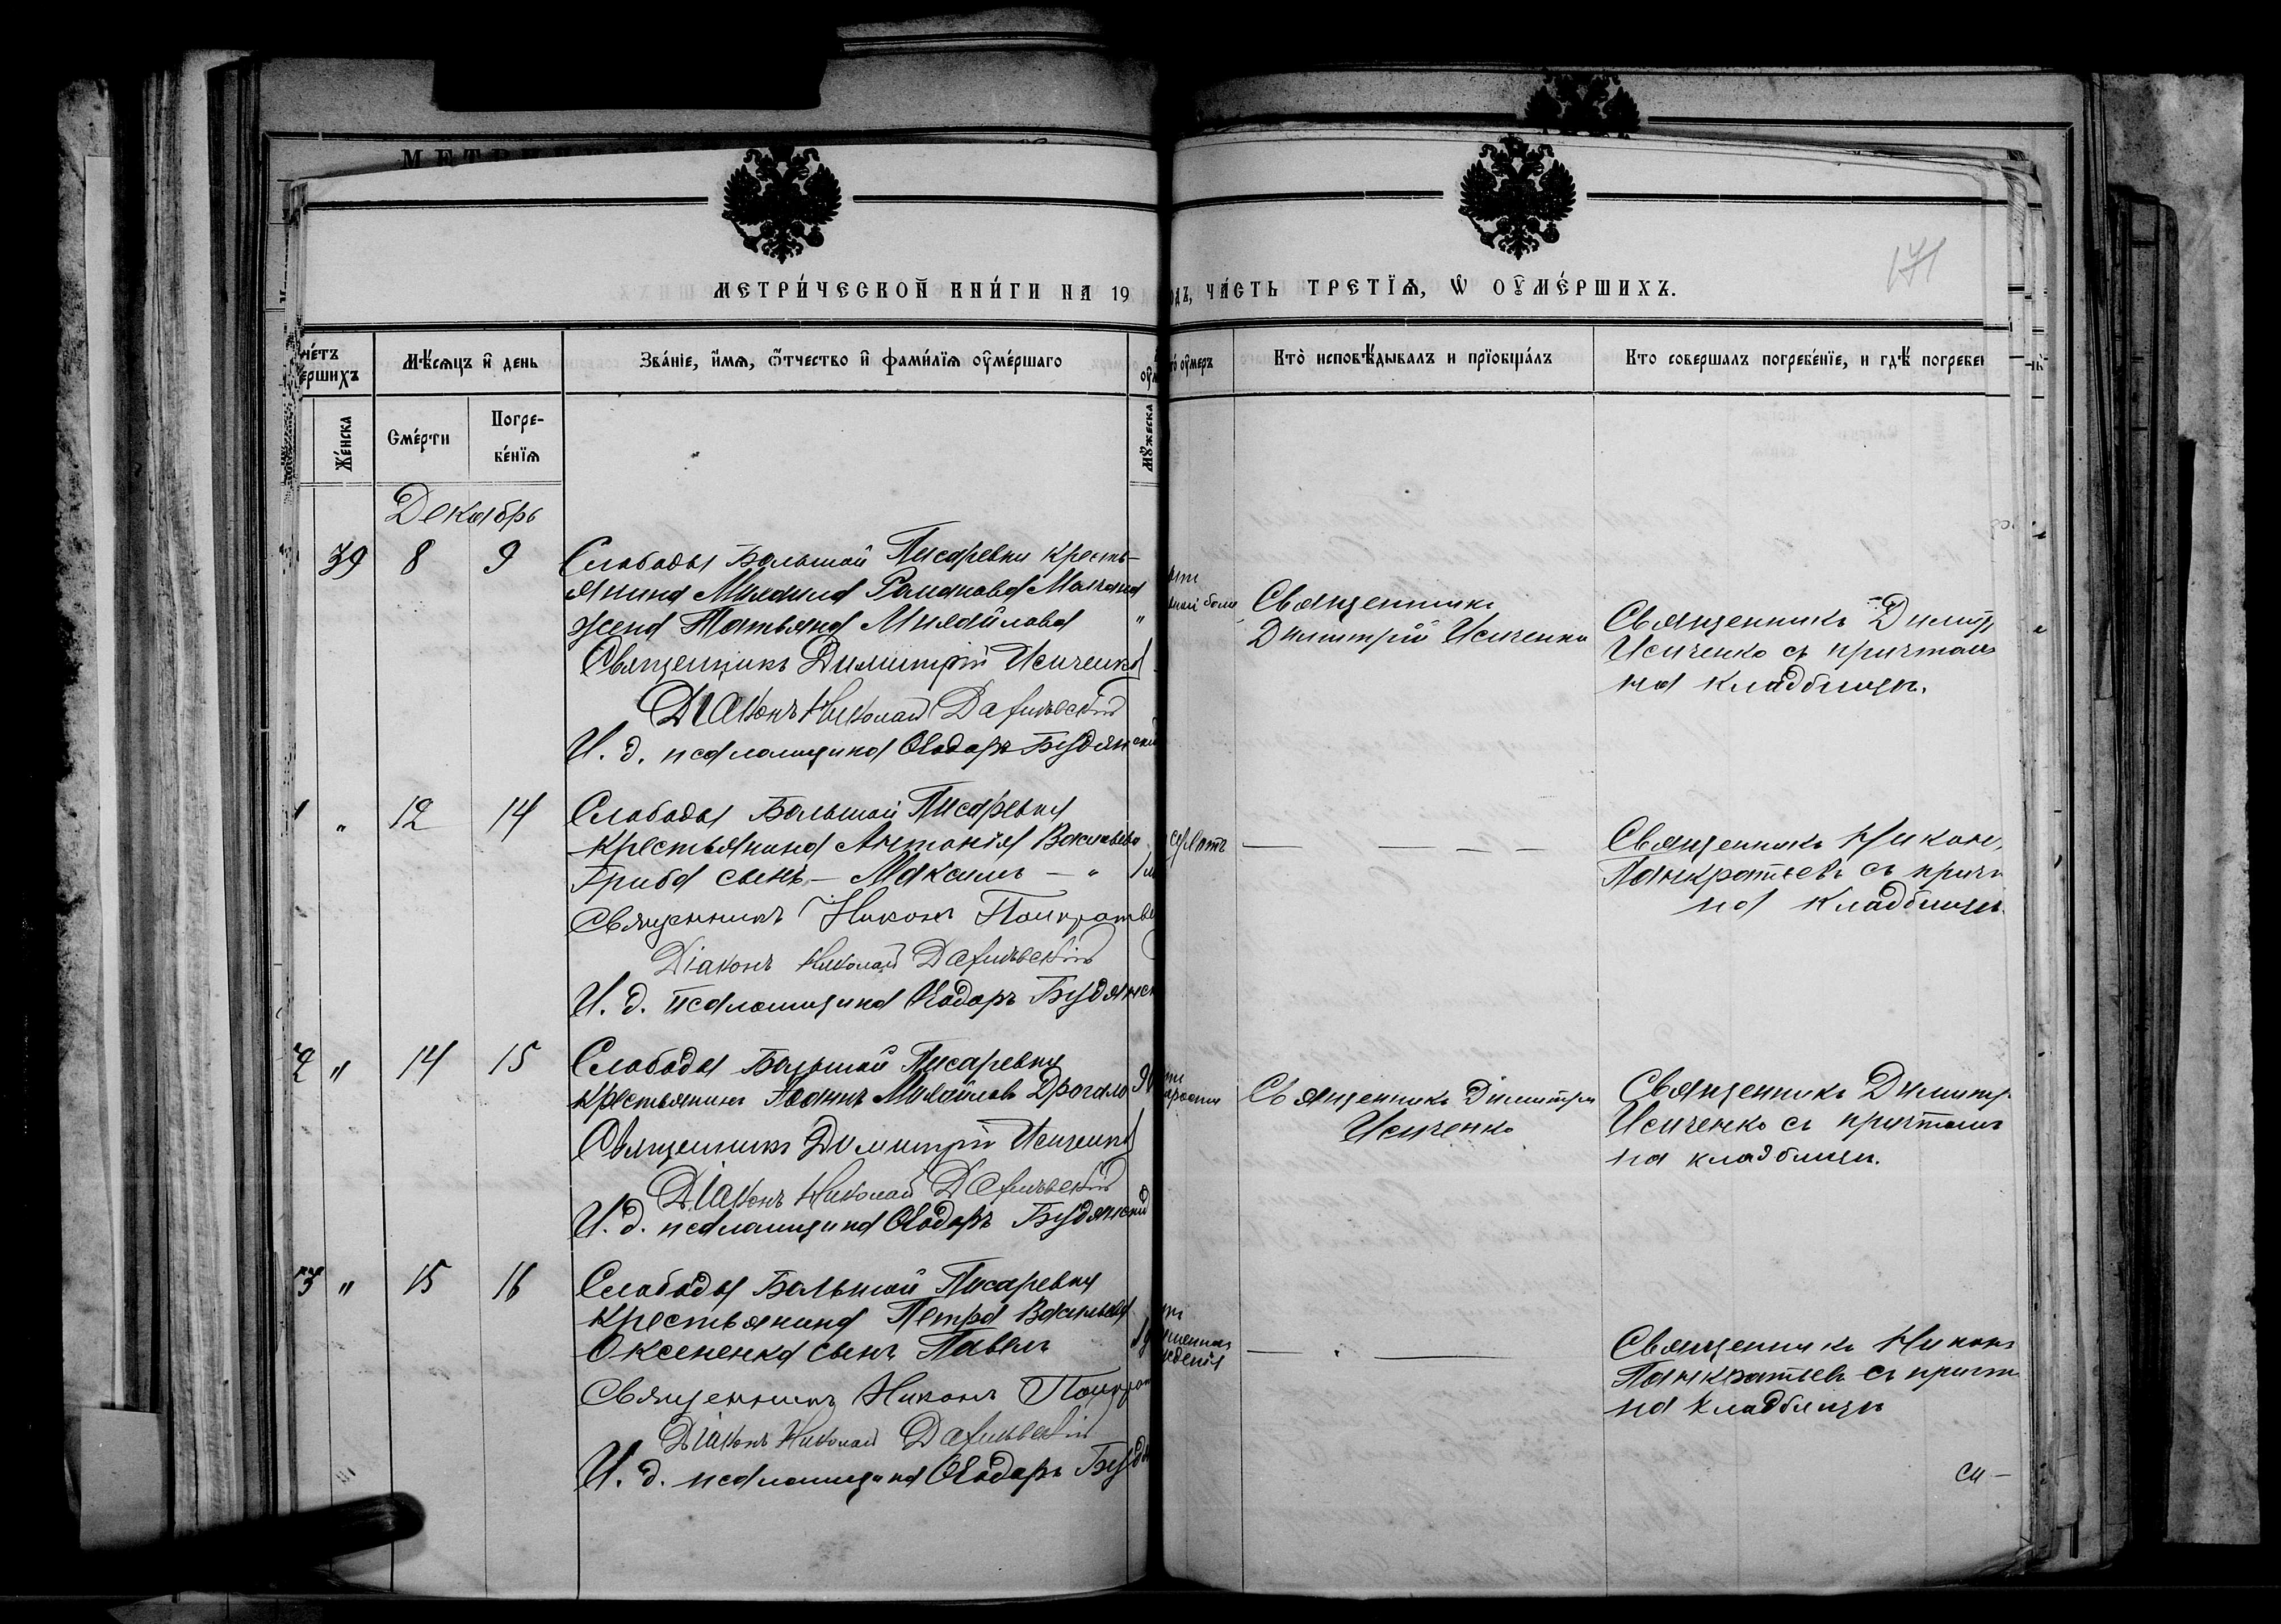 МЕТРИ́ЧЕСКОЙ КНИ́ГИ НА 19
ЧА́СТЬ ТРЕТЇѦ, Ѡ҆ ОУ҆МЕ́РШИХЪ.
171
Мѣ́сѧцъ и҆ день
Зва́нїе, и҆́мѧ, ѻ҆́тчество и҆ фами́лїѧ оу҆ме́ршаго
оу҆меръ
Кто̀ исповѣ́дывалъ и прїобща́лъ
Кто совершалъ погребе́нїе, и гдѣ̀ погребен
Же́нска
Сме́рти
Погре-
бе́нїѧ
Мꙋ́жеска
Декабрь
39 8 9 Слободы Большой Писаревки кресть-
янина Михаила Романова
жена Татьяна Михайлова "
Священникъ Димитрій Исиченко
Діаконъ Николай
И. д. псаломщика Ѳеодоръ Будянскій
Священникъ
Димитрій Исиченко
Священникъ Димитр
Исиченко съ причтомъ
на кладбищѣ.
" 12 14 Слободы Большой Писаревки
крестьянина Антонія Васильева
Гриба сынъ – Максимъ – "
Священникъ Никонъ Панкратье
Діаконъ Николай
И. д. псаломщика Ѳеодоръ Будянск
Священникъ Никон
Панкратьевъ съ причт
на кладбищѣ
2 " 14 15 Слободы Большой Писаревки
крестьянинъ Іоаннъ Михайловъ Дрогало
Священникъ Димитрій Исиченко
Діаконъ Николай
И. д. псаломщика Ѳеодоръ Будянскій
Священникъ Димитрій
Исиченко
Священникъ Димитр
Исиченко съ причтомъ
на кладбищѣ.
3 " 15 16 Слободы Большой Писаревки
крестьянина Петра Васильева
Оксененка сынъ Павелъ
Священникъ Никонъ Панкрат
Діаконъ Николай
И. д. псаломщика Ѳеодоръ Будян
Священникъ Никонъ
Панкратьевъ съ причт
на кладбищѣ